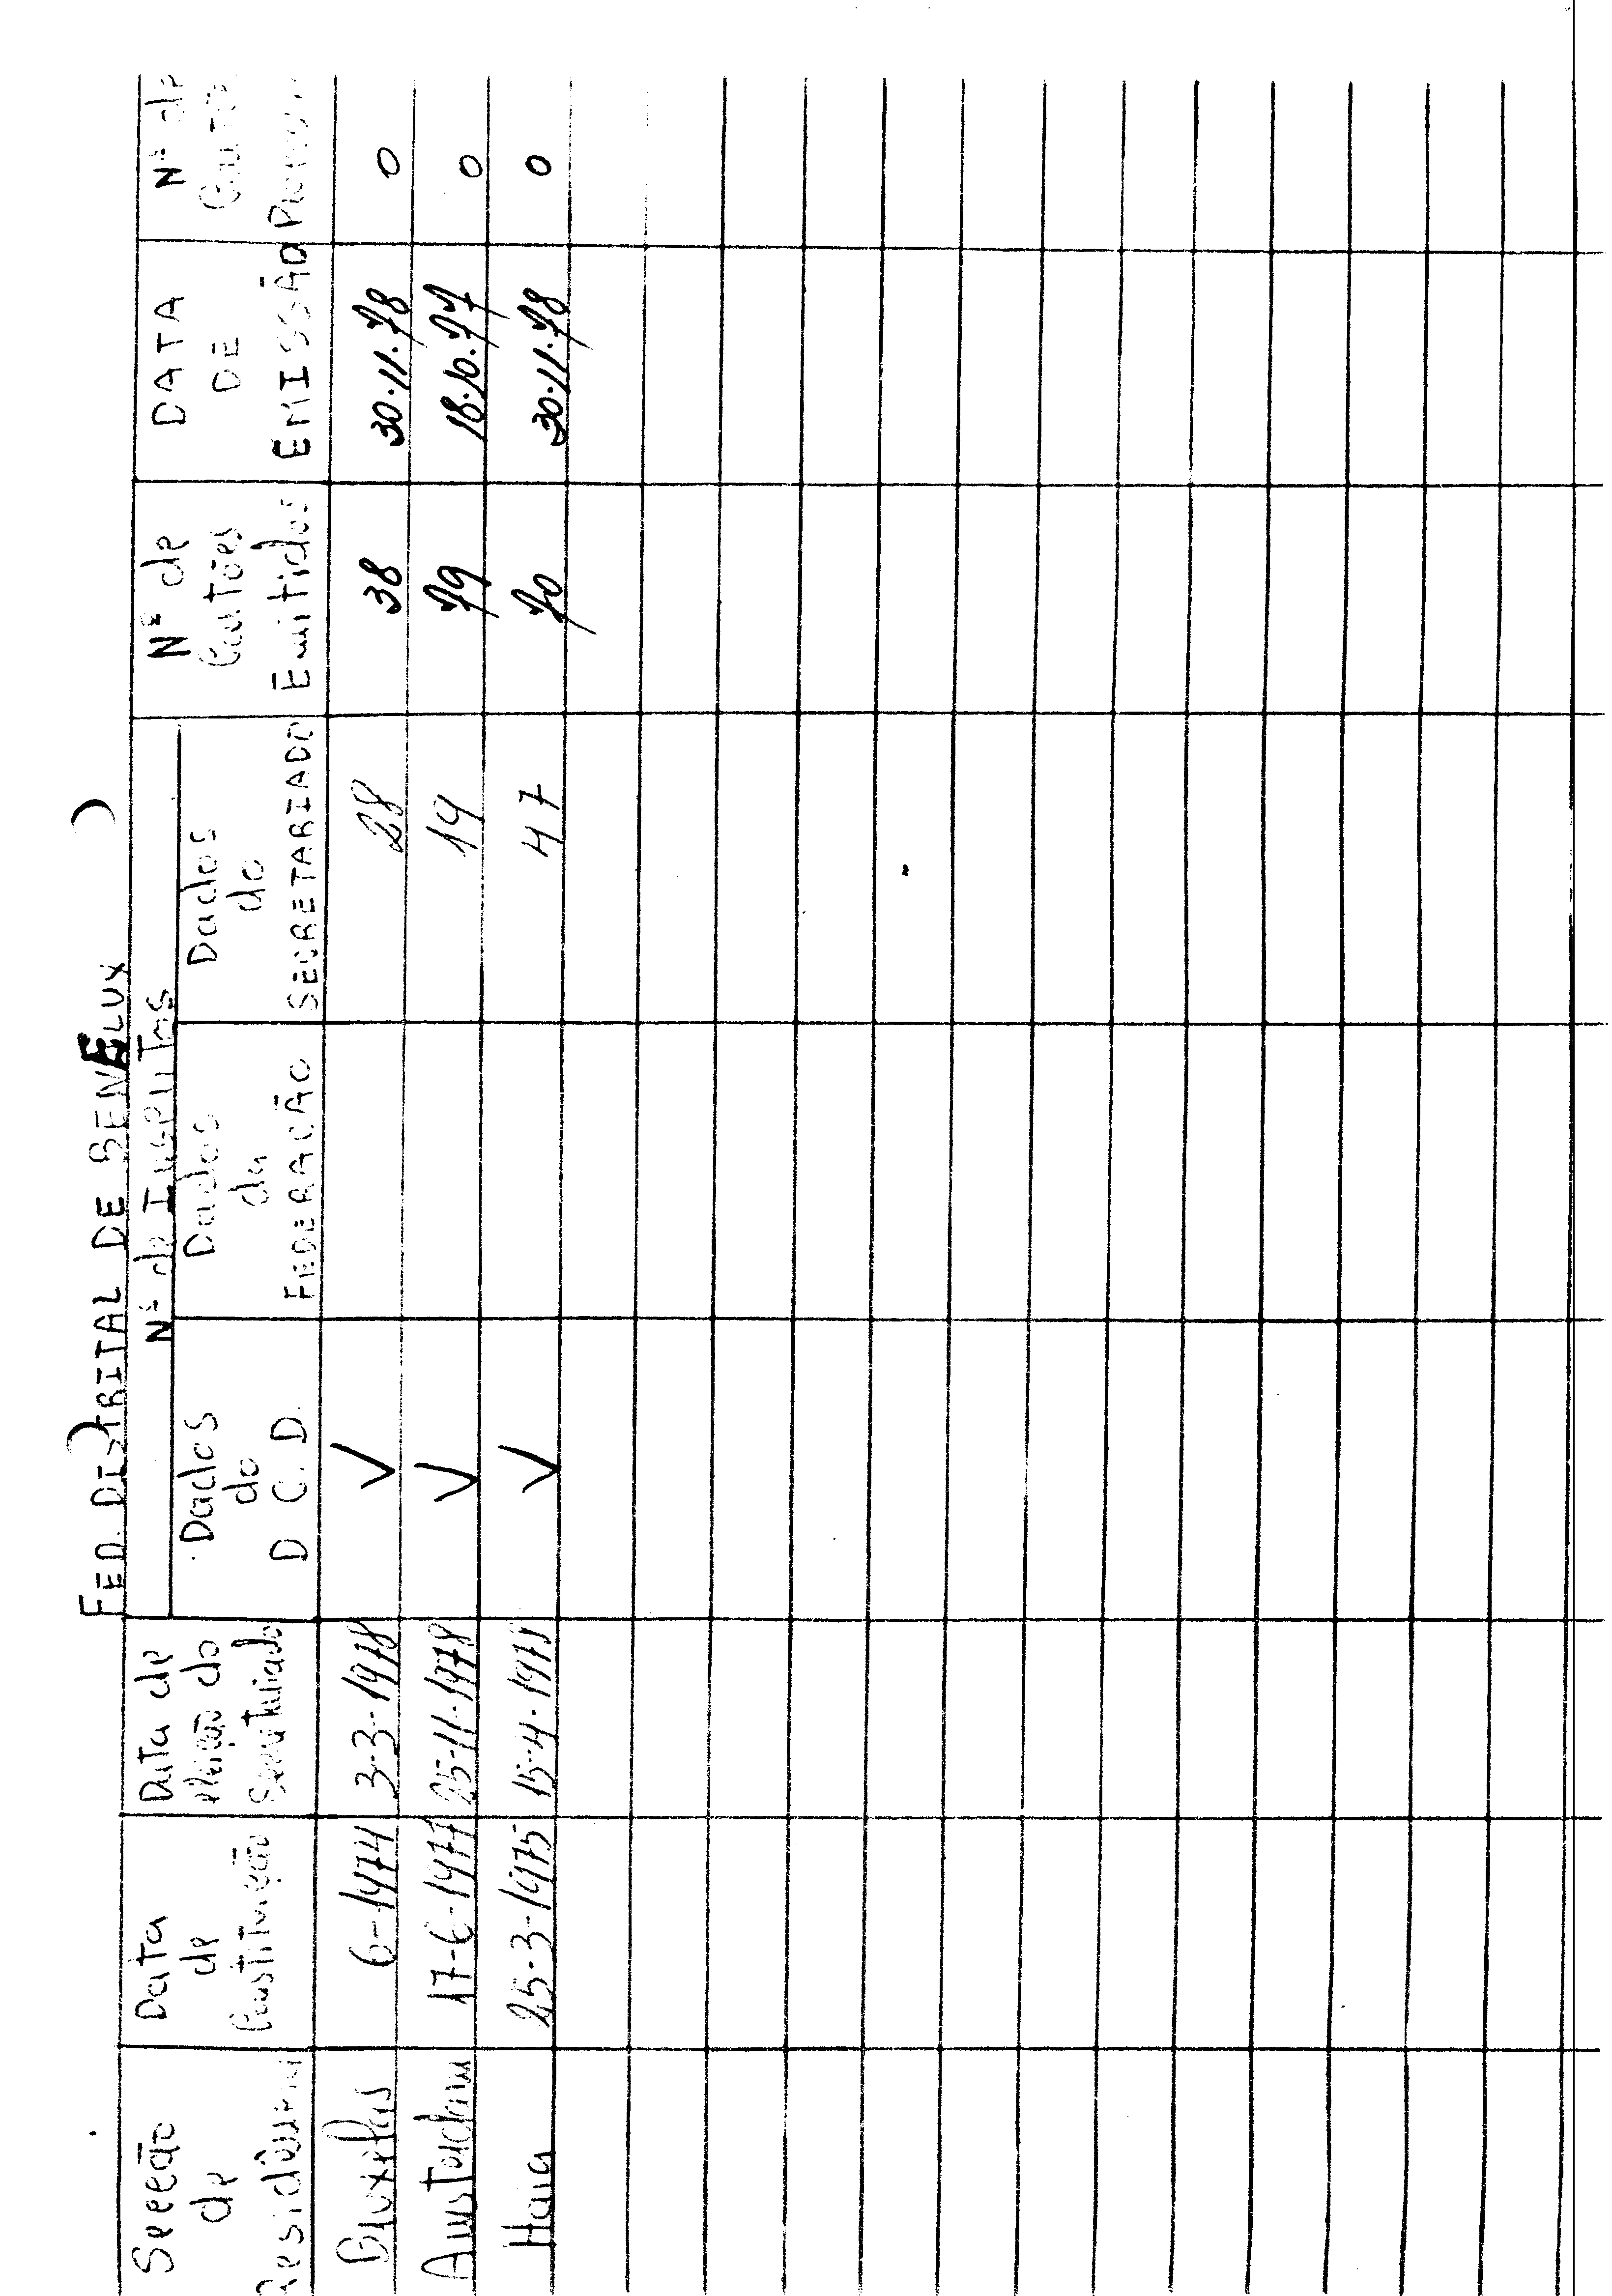 FED. DISTRITAL DE BENELUX
Secção de Residência
Data de Constituição
Data de eleição do Secretariado
Nº de Inscritos
Dados do D C. D.
Dados da FEDERAÇÃO
Dados do SECRETARIADO
Nº de Cartões Emitidos
DATA DE EMISSÃO
Nº de
Bruxelas 6-1974 3-3-1978 V 28 38 30.11.78 0
Amsterdam 17-6-1977 25-11-1978 V 19 79 18.10.77 0
Haia 25-3-1975 15-4-1978 V 47 70 30.11.78 0